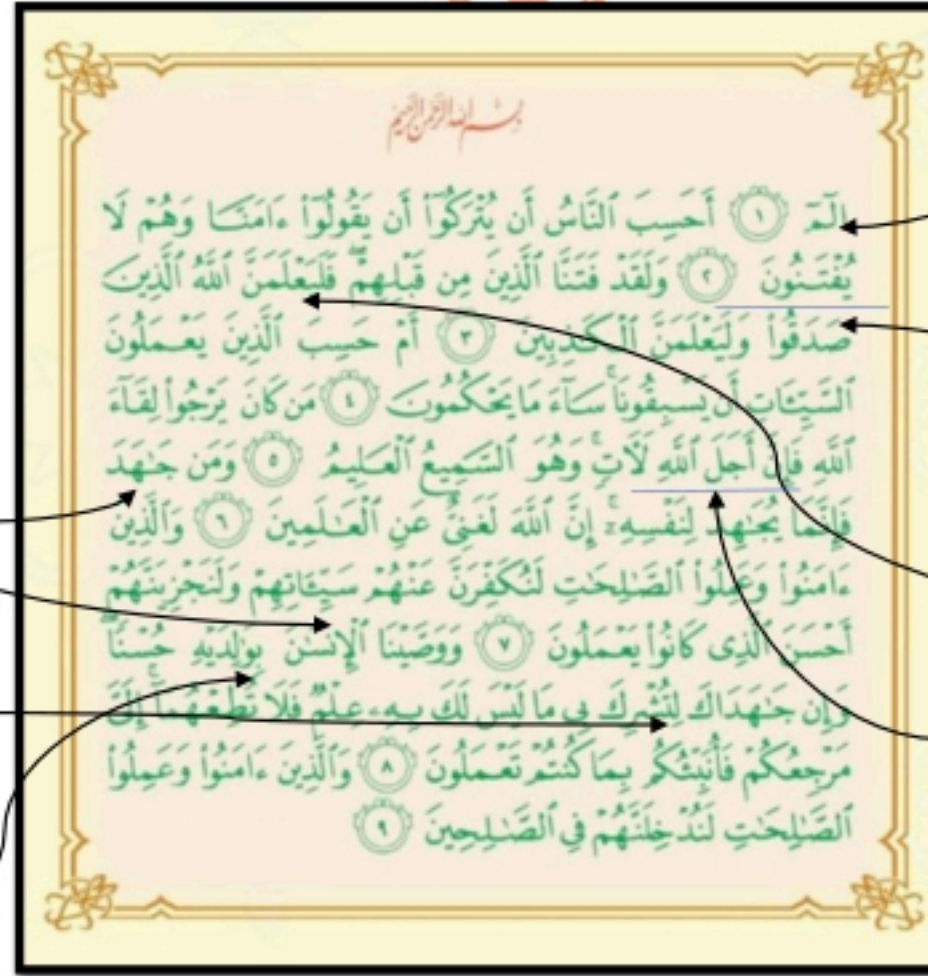 بِسْمِ اللَّهِ الرَّحْمَٰنِ الرَّحِيمِ
الٓمٓ ١ أَحَسِبَ ٱلنَّاسُ أَن يُتْرَكُوٓا۟ أَن يَقُولُوٓا۟ ءَامَنَّا وَهُمْ لَا
يُفْتَنُونَ ٢ وَلَقَدْ فَتَنَّا ٱلَّذِينَ مِن قَبْلِهِمْ ۖ فَلَيَعْلَمَنَّ ٱللَّهُ ٱلَّذِينَ
صَدَقُوا۟ وَلَيَعْلَمَنَّ ٱلْكَٰذِبِينَ ٣ أَمْ حَسِبَ ٱلَّذِينَ يَعْمَلُونَ
ٱلسَّيِّـَٔاتِ أَن يَسْبِقُونَا ۚ سَآءَ مَا يَحْكُمُونَ ٤ مَن كَانَ يَرْجُوا۟ لِقَآءَ
ٱللَّهِ فَإِنَّ أَجَلَ ٱللَّهِ لَـَٔاتٍ ۚ وَهُوَ ٱلسَّمِيعُ ٱلْعَلِيمُ ٥ وَمَن جَٰهَدَ
فَإِنَّمَا يُجَٰهِدُ لِنَفْسِهِۦٓ ۚ إِنَّ ٱللَّهَ لَغَنِىٌّ عَنِ ٱلْعَٰلَمِينَ ٦ وَٱلَّذِينَ
ءَامَنُوا۟ وَعَمِلُوا۟ ٱلصَّٰلِحَٰتِ لَنُكَفِّرَنَّ عَنْهُمْ سَيِّـَٔاتِهِمْ وَلَنَجْزِيَنَّهُمْ
أَحْسَنَ ٱلَّذِى كَانُوا۟ يَعْمَلُونَ ٧ وَوَصَّيْنَا ٱلْإِنسَٰنَ بِوَٰلِدَيْهِ حُسْنًا ۖ
وَإِن جَٰهَدَاكَ لِتُشْرِكَ بِى مَا لَيْسَ لَكَ بِهِۦ عِلْمٌ فَلَا تُطِعْهُمَآ ۚ إِلَىَّ
مَرْجِعُكُمْ فَأُنَبِّئُكُم بِمَا كُنتُمْ تَعْمَلُونَ ٨ وَٱلَّذِينَ ءَامَنُوا۟ وَعَمِلُوا۟
ٱلصَّٰلِحَٰتِ لَنُدْخِلَنَّهُمْ فِى ٱلصَّٰلِحِينَ ٩